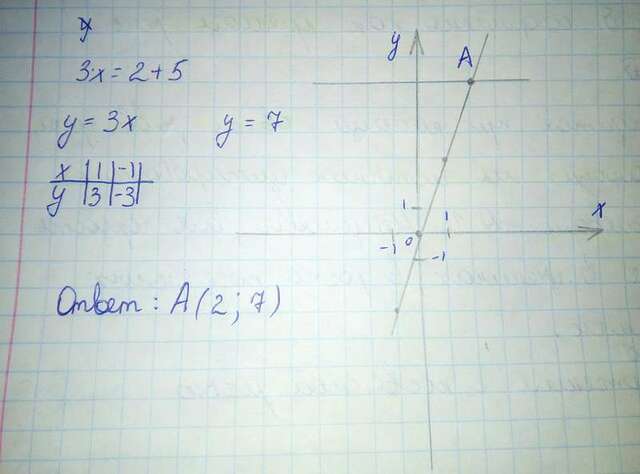 y
3x = 2 + 5
y = 3x
y = 7
x | 1 | -1 |
y | 3 | -3 |
Ответ: A (2; 7)
y
A
1
1
x
-1
0
-1